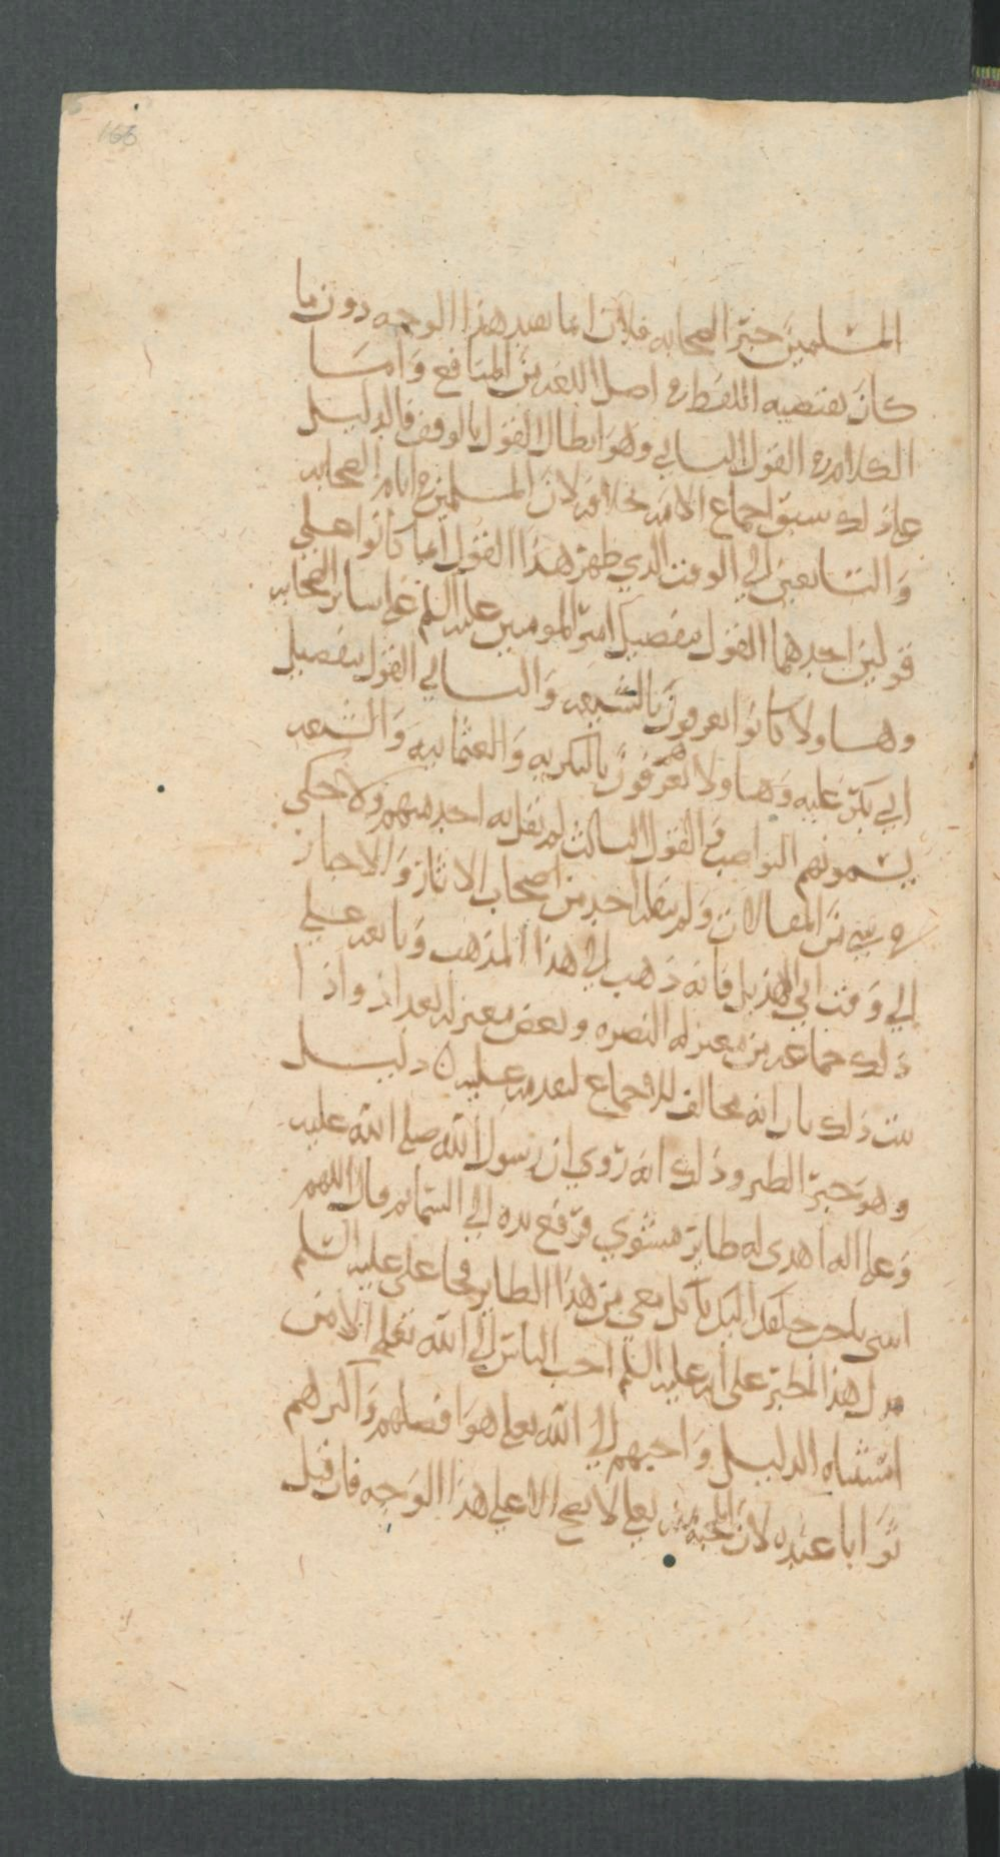 166
المسلمين خير الصحابه فلان انما يفيد هذا الوجه دون ما
كان يقتضيه اللفظ في اصل اللغه من المنافع وَامّا
الكلام في القول الثاني وهو ابطال القول بالوقف فالدليل
على ذلك سبق اجماع الامه بخلافه لان المسلمين في ايام الصحابه
وَالتابعين الى الوقت الذي ظهر هذا القول انما كانوا على
قولين احدهما القول بتفضيل امير المومنين عليه السلم على سائر الصحابه
وهاولا كانوا يعرفون بالشيعه وَالثاني القول بتفضيل
ابي بكر عليه وَهاولا يعرفون بالبكريه وَالعثمانيه وَالشيعه
يسمونهم النواصب وَالقول الثالث لم يقل به احد منهم ولا حكى
في شي من المقالات وَلم ينقله احد من اصحاب الاثار وَالاخبار
الى وَقت ابي الهذيل فانه ذهب الى هذا المذهب وَتابعه على
ذلك جماعه من معتزله البصره وبعض معتزله بغداد واذا
ثبت ذلك بان انه مخالف للاجماع لتقدمه عليه ۞ دليل
وهو خبر الطير وذلك انه رُوي ان رسول الله صلى الله عليه
وَعلى اله اهدى له طاير مشوي فرفع يده الى السما ثم قال اللهم
ائتني باحب خلقك اليك ياكل معي من هذا الطاير فجا علي عليه السلم
فدل هذا الخبر على انه عليه السلم احب الناس الى الله تعلى الا من
استثناه الدليل وَاحبهم الى الله تعلى هو افضلهم وَاكثرهم
ثوابا عنده لان المحبه من الله تعلى لا تصح الا على هذا الوجه فان قيل